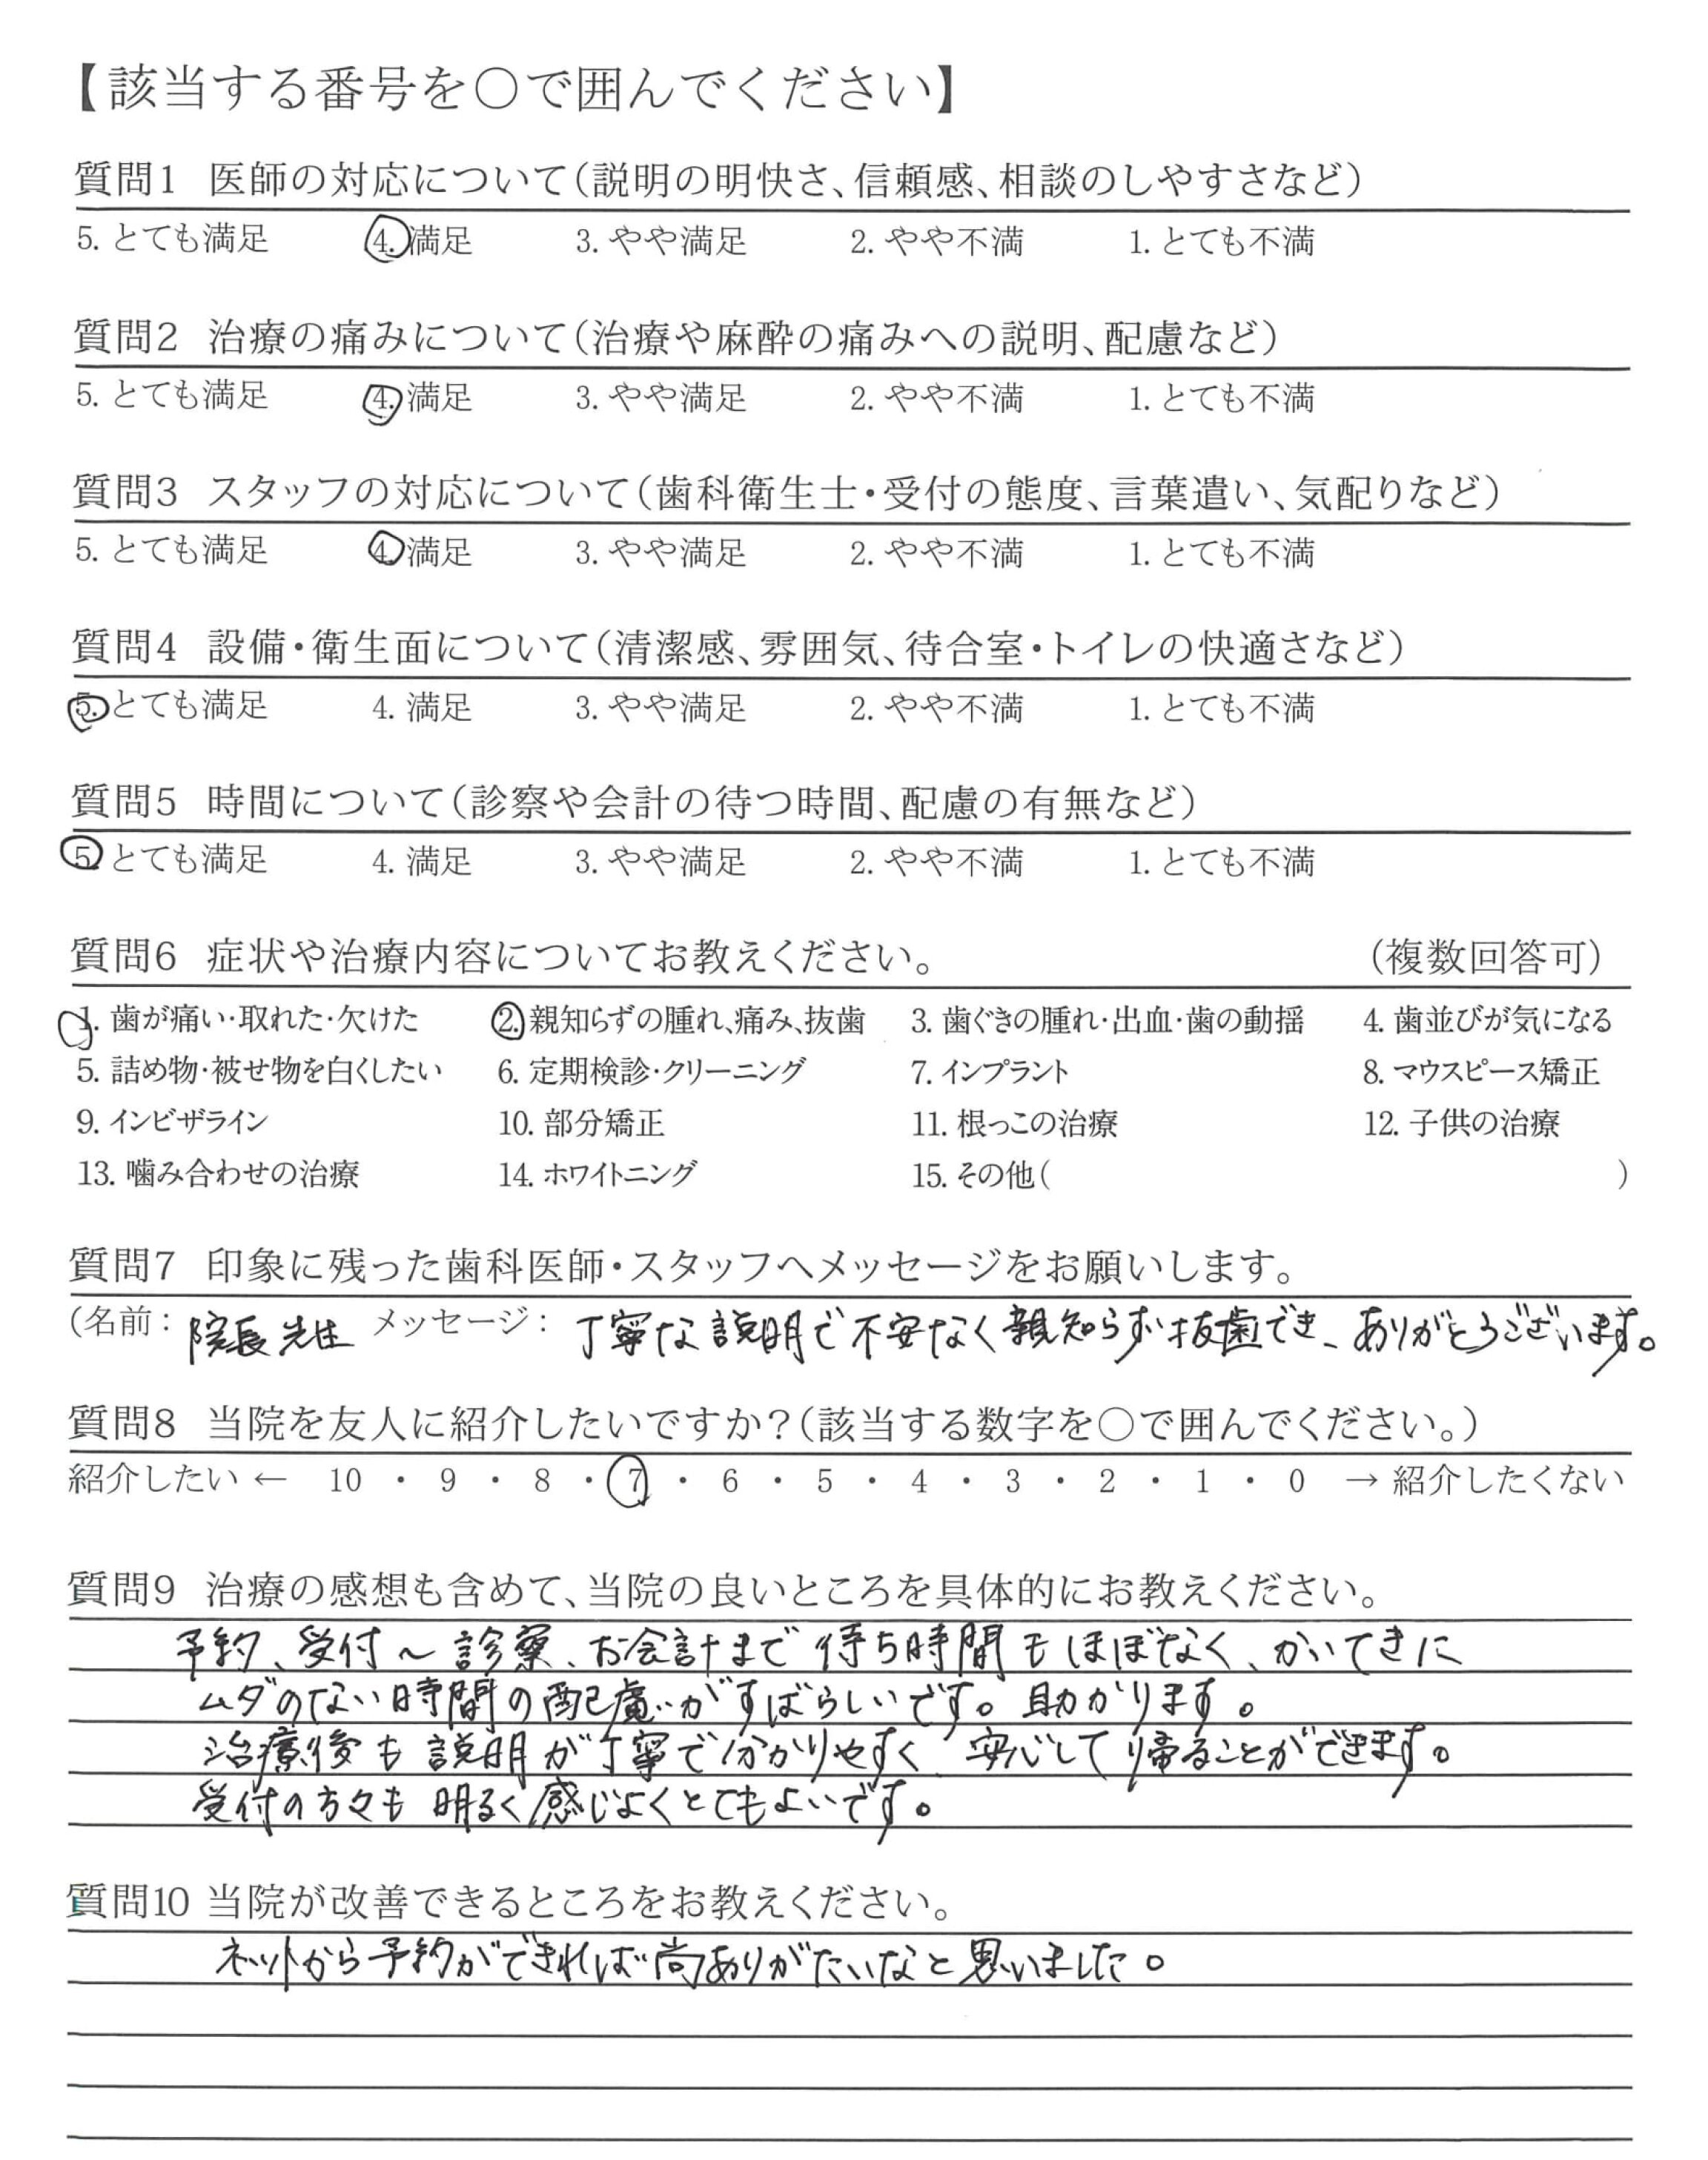 【該当する番号を〇で囲んでください】
質問1 医師の対応について(説明の明快さ、信頼感、相談のしやすさなど)
5. とても満足 4. 満足 3. やや満足 2. やや不満 1. とても不満
質問2 治療の痛みについて(治療や麻酔の痛みへの説明、配慮など)
5. とても満足 4. 満足 3. やや満足 2. やや不満 1. とても不満
質問3 スタッフの対応について(歯科衛生士・受付の態度、言葉遣い、気配りなど)
5. とても満足 4. 満足 3. やや満足 2. やや不満 1. とても不満
質問4 設備・衛生面について(清潔感、雰囲気、待合室・トイレの快適さなど)
5. とても満足 4. 満足 3. やや満足 2. やや不満 1. とても不満
質問5 時間について(診察や会計の待つ時間、配慮の有無など)
5. とても満足 4. 満足 3. やや満足 2. やや不満 1. とても不満
質問6 症状や治療内容についてお教えください。 (複数回答可)
1. 歯が痛い・取れた・欠けた 2. 親知らずの腫れ、痛み、抜歯 3. 歯ぐきの腫れ・出血・歯の動揺 4. 歯並びが気になる
5. 詰め物・被せ物を白くしたい 6. 定期検診・クリーニング 7. インプラント 8. マウスピース矯正
9. インビザライン 10. 部分矯正 11. 根っこの治療 12. 子供の治療
13. 噛み合わせの治療 14. ホワイトニング 15. その他( )
質問7 印象に残った歯科医師・スタッフへメッセージをお願いします。
(名前: 院長先生 メッセージ: 丁寧な説明で不安なく親知らず抜歯でき、ありがとうございます。
質問8 当院を友人に紹介したいですか?(該当する数字を〇で囲んでください。)
紹介したい ← 10 ・ 9 ・ 8 ・ 7 ・ 6 ・ 5 ・ 4 ・ 3 ・ 2 ・ 1 ・ 0 → 紹介したくない
質問9 治療の感想も含めて、当院の良いところを具体的にお教えください。
予約、受付〜診察、お会計まで待ち時間もほぼなく、かいてきに
ムダのない時間の配慮がすばらしいです。助かります。
治療後も説明が丁寧で分かりやすく、安心して帰ることができます。
受付の方々も明るく感じよくとてもよいです。
質問10 当院が改善できるところをお教えください。
ネットから予約ができれば尚ありがたいなと思いました。